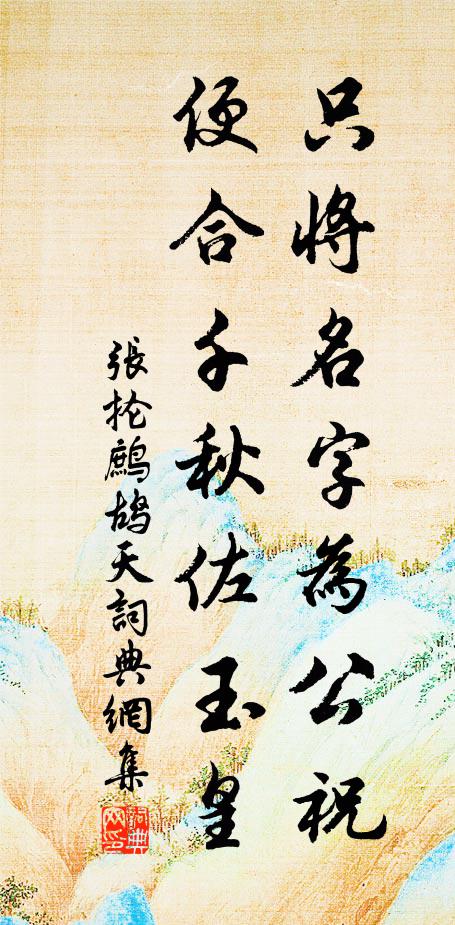 只將名字為公祝
便合千秋佐玉皇
張抡鷓鴣天詞典網集
詞典网印